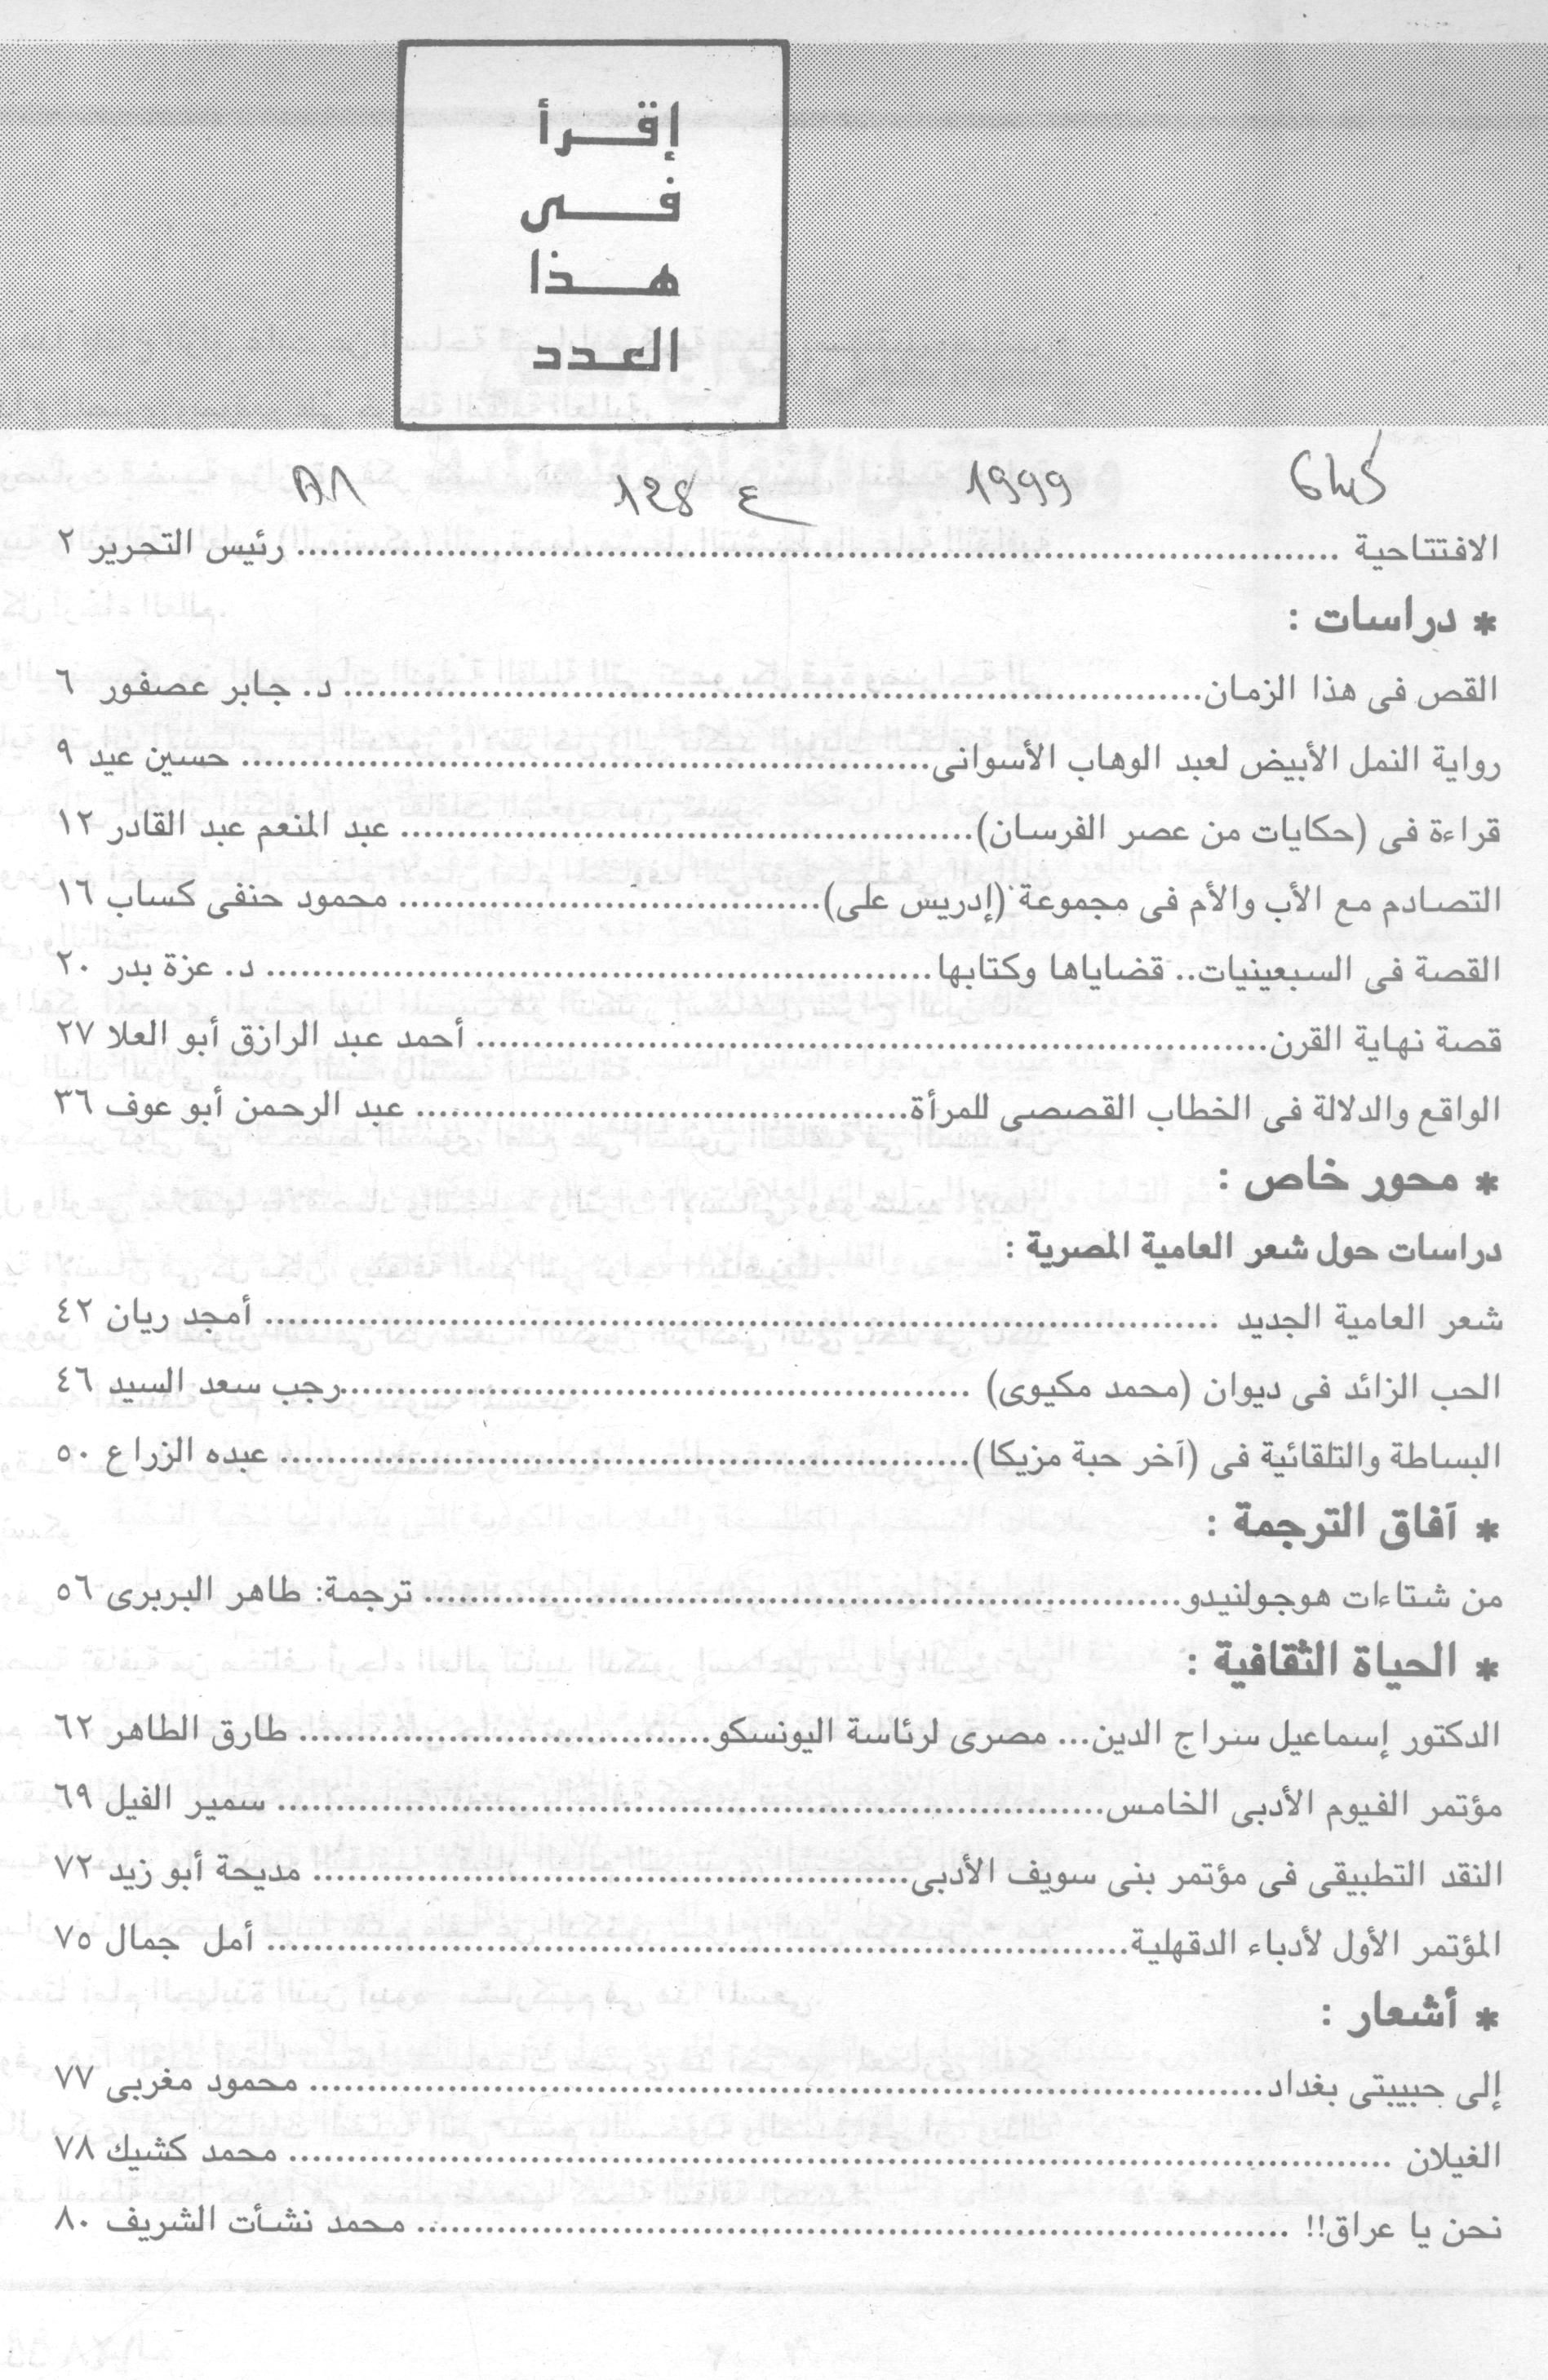 إقرأ
فى
هذا
العدد
1999 ع 128
الافتتاحية ........ رئيس التحرير ٢
* دراسات :
القص فى هذا الزمان........ د. جابر عصفور ٦
رواية النمل الأبيض لعبد الوهاب الأسوانى........ حسين عيد ٩
قراءة فى (حكايات من عصر الفرسان)........ عبد المنعم عبد القادر ١٢
التصادم مع الأب والأم فى مجموعة (إدريس على)........ محمود حنفى كساب ١٦
القصة فى السبعينيات.. قضاياها وكتابها........ د. عزة بدر ٢٠
قصة نهاية القرن........ أحمد عبد الرازق أبو العلا ٢٧
الواقع والدلالة فى الخطاب القصصى للمرأة........ عبد الرحمن أبو عوف ٣٦
* محور خاص :
دراسات حول شعر العامية المصرية :
شعر العامية الجديد ........ أمجد ريان ٤٢
الحب الزائد فى ديوان (محمد مكيوى) ........رجب سعد السيد ٤٦
البساطة والتلقائية فى (آخر حبة مزيكا)........ عبده الزراع ٥٠
* آفاق الترجمة :
من شتاءات هوجولنيدو........ ترجمة: طاهر البربرى ٥٦
* الحياة الثقافية :
الدكتور إسماعيل سراج الدين... مصرى لرئاسة اليونسكو........ طارق الطاهر ٦٢
مؤتمر الفيوم الأدبى الخامس........ سمير الفيل ٦٩
النقد التطبيقى فى مؤتمر بنى سويف الأدبى........ مديحة أبو زيد ٧٢
المؤتمر الأول لأدباء الدقهلية........ أمل جمال ٧٥
* أشعار :
إلى حبيبتى بغداد........ محمود مغربى ٧٧
الغيلان ........ محمد كشيك ٧٨
نحن يا عراق!! ........ محمد نشأت الشريف ٨٠